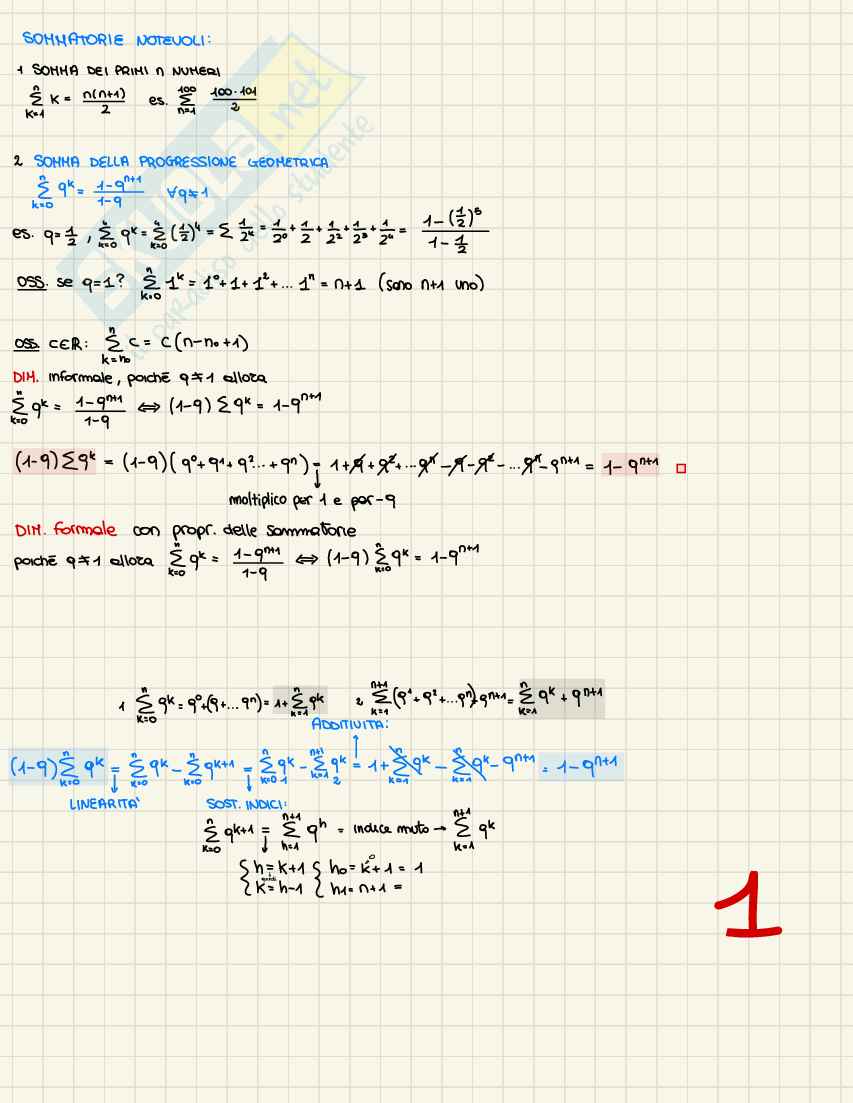 SOMMATORIE NOTEVOLI:
1 SOMMA DEI PRIMI n NUMERI
∑_{k=1}^{n} k = n(n+1)/2 es. ∑_{n=1}^{100} 100·101/2
2 SOMMA DELLA PROGRESSIONE GEOMETRICA
∑_{k=0}^{n} q^k = (1-q^{n+1})/(1-q) ∀q≠1
es. q=1/2 , ∑_{k=0}^{4} q^k = ∑_{k=0}^{4} (1/2)^4 = ∑ 1/2^k = 1/2^0 + 1/2 + 1/2^2 + 1/2^3 + 1/2^4 = (1-(1/2)^5)/(1-1/2)
OSS. se q=1? ∑_{k=0}^{n} 1^k = 1^0+1+1^2+... 1^n = n+1 (sono n+1 uno)
OSS. C∈R: ∑_{k=n_0}^{n} C = C(n-n_0+1)
DIM. informale, poichē q≠1 allora
∑_{k=0}^{n} q^k = (1-q^{n+1})/(1-q) ⟺ (1-q) ∑q^k = 1-q^{n+1}
(1-q)∑q^k = (1-q)(q^0+q^1+q^2...+q^n) = 1+q+q^2+...q^n-q-q^2-...q^n-q^{n+1} = 1-q^{n+1} □
moltiplico per 1 e per -q
DIM. formale con propr. delle sommatorie
poichē q≠1 allora ∑_{k=0}^{n} q^k = (1-q^{n+1})/(1-q) ⟺ (1-q) ∑_{k=0}^{n} q^k = 1-q^{n+1}
1 ∑_{k=0}^{n} q^k = q^0+(q+...q^n) = 1+∑_{k=1}^{n} q^k 2 ∑_{k=1}^{n+1} (q^1+q^2+...q^n)+q^{n+1} = ∑_{k=1}^{n} q^k + q^{n+1}
ADDITIVITA:
(1-q)∑_{k=0}^{n} q^k = ∑_{k=0}^{n} q^k - ∑_{k=0}^{n} q^{k+1} = ∑_{k=0}^{n} q^k 1 - ∑_{k=1}^{n+1} q^k 2 = 1+∑_{k=1}^{n} q^k - ∑_{k=1}^{n} q^k - q^{n+1} = 1-q^{n+1}
LINEARITA' SOST. INDICI:
∑_{k=0}^{n} q^{k+1} = ∑_{h=1}^{n+1} q^h = indice muto → ∑_{k=1}^{n+1} q^k
{ h=k+1 { h_0 = k^0+1 = 1
quindi
{ k=h-1 { h1= n+1 =
1
SKUOLA.net
il paradiso dello studente